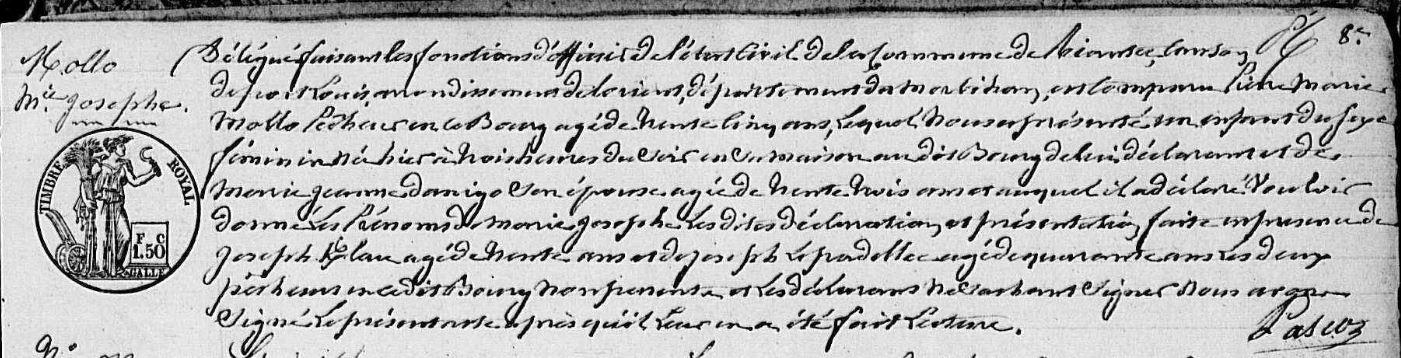 8e
Mollo
Mie Josephe
TIMBRE ROYAL
F C
1.50
GALLE
Délégué faisant les fonctions d'officier de l'état civil de la Commune de Riantec, Canton
de port Louis, arrondissement de Lorient, département du Morbihan, est Comparu Pierre Marie
Mollo Pêcheur en ce Bourg agé de trente Cinq ans, Lequel Nous a présenté un enfant du sexe
féminin né hier à trois heures du soir en sa maison au dit Bourg de lui déclarant et de
Marie Jeanne Danigo Son épouse agée de trente trois ans et auquel il a déclaré Vouloir
donner les Prénoms de Marie Josephe Les dites déclaration et présentation faite en presence de
Joseph agé de trente ans et de joseph Le padellec agé de quarante ans Les deux
pêcheurs en ce dit Bourg Non parents et Les déclarans Ne Sachant Signer Nous avons
Signé Le présent acte après qu'il Leur en a été fait Lecture.
Pasco